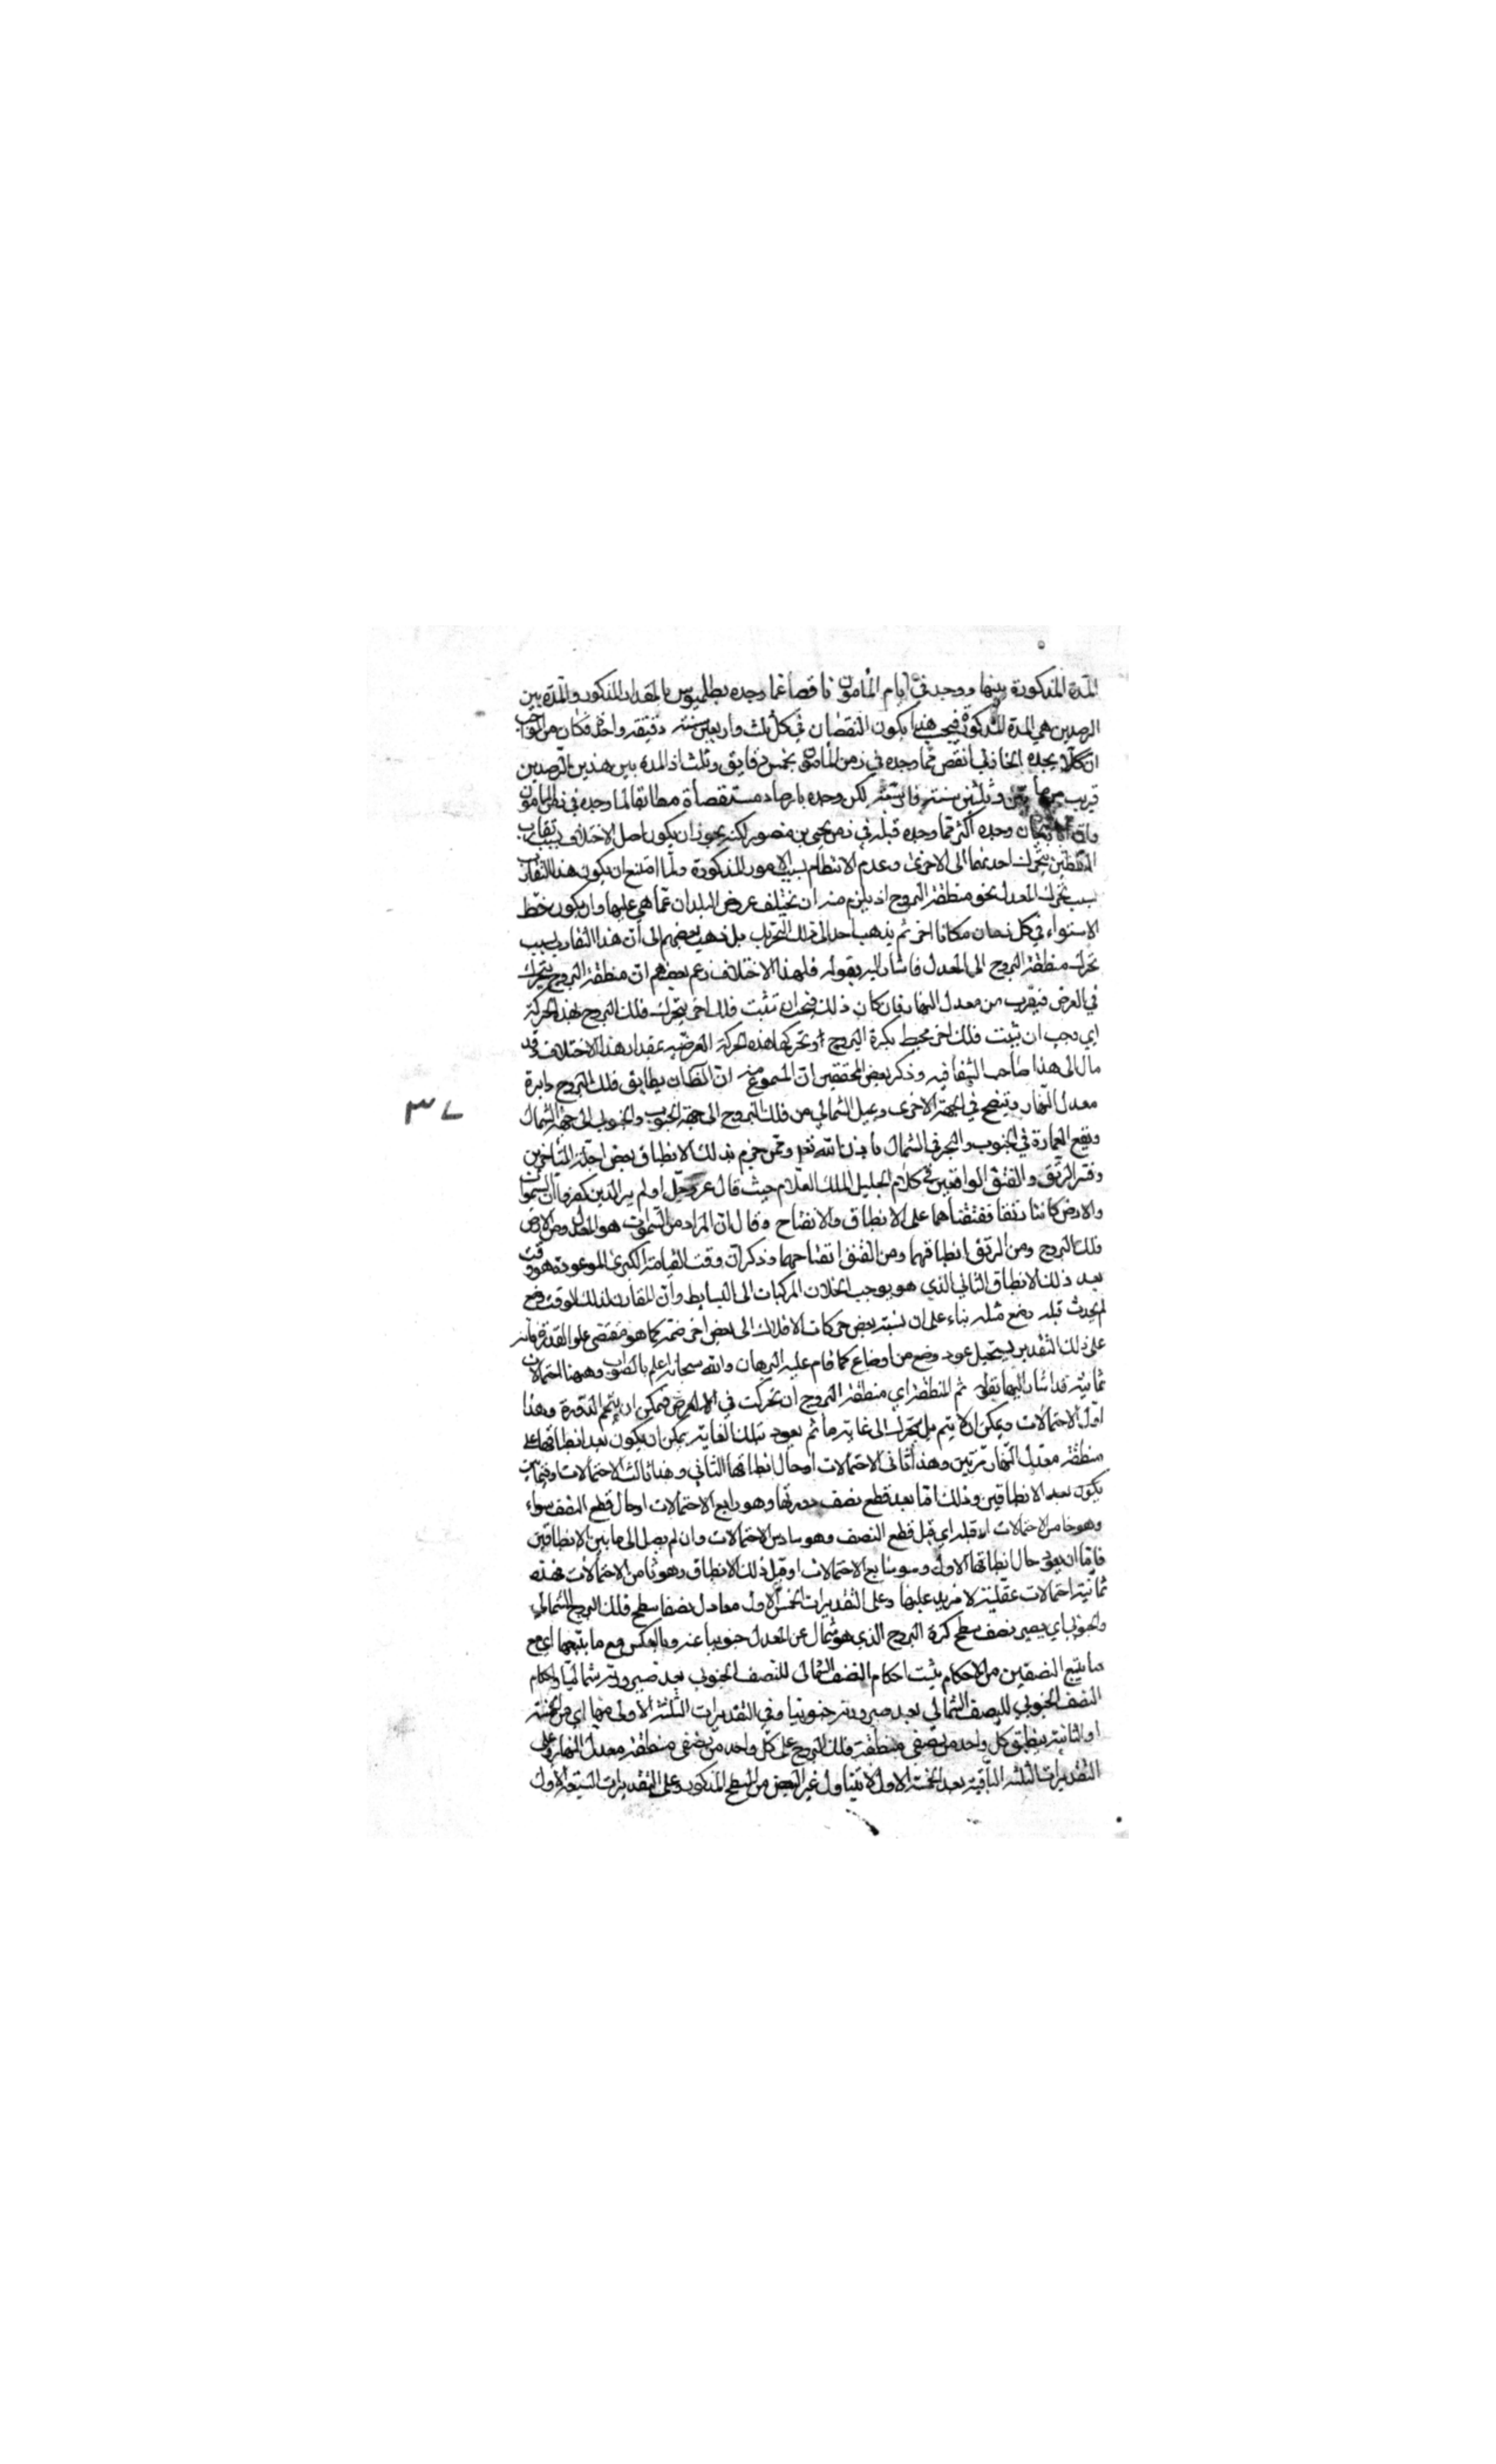 المدة المذكورة بينهما ووجد في ايام المأمون ناقصا عما وجده بطلميوس بالمقدار المذكور والمدة بين
الرصدين هي المدة المذكورة فيجب هذا يكون النقصان في كل ثلث واربعين سنته دقيقة واحدة فكان من الواجب
ان كلا يجده الخازني انقص مما وجده في زمن المامون بخمس دقايق وثلث اذ المدة بين هذين الرصدين
قريب من وثلثين سنته لكن وحده بارصاد مستقصاة مطابقا لما وجده في
وجده اكثر مما وجده قبله في زمن يحيى بن منصور لكنه يجوز ان يكون اصل الاختلاف بسبب تقارب
المنطقتين بتحرك احدىهما الى الاخرى وعدم الانتظام بسبب الامور المذكورة ولما امتنع ان يكون هذا التقارب
بسبب تحرك المعدل نحو منطقة البروج اذ يلزم منه ان تختلف عروض البلدان عما هي عليها وان يكون خط
الاستواء في كل زمان مكانا اخر ثم يذهب احد الى ذلك التحريك بل ذهب بعضهم الى ان هذا التقارب بسبب
تحرك منطقة البروج الى المعدل فاشار اليه بقوله فلهذا الاختلاف زعم بعضهم ان منطقة البروج يتحرك
في العرض فيقرب من معدل النهار فان كان ذلك فيجب ان تثبت فلك اخر يتحرك فلك البروج بهذه الحركة
اي وجب ان يثبت فلك اخر محيط بكرة البروج وتحركها هذه الحركة العرضية بمقدار هذا الاختلاف وقد
مال الى هذا صاحب الشفا فيه وذكر بعض المحققين ان المسموع منه ان انطباق فلك البروج دايرة
معدل النهار وتنفتح في الجهة الاخرى ويميل الشمالي من فلك البروج الى جهة الجنوب والجنوبي الى جهة الشمال
ويقع العمارة في الجنوب والبحر في الشمال باذن الله تعالى وممن جزم بذلك الانطباق بعض اجلة المتاخرين
وفسر الرتق والفتق الواقعين في كلام الجليل الملك العلام حيث قال عز وجل اولم ير الذين كفروا ان السموات
والارض كانتا رتقا ففتقناهما على الانطباق والانفتاح وقال ان المراد من السموات هو المعدل ومن الارض
فلك البروج ومن الرتق انطباقهما ومن الفتق انفتاحهما وذكر ان وقت القيامة الكبرى الموعودة هو وقت
بعد ذلك الانطباق الثاني الذي هو يوجب انحلال المركبات الى البسايط وان المقارن لذلك الوقت وضع
لم يحدث قبله وضع مثله بناء على ان نسبة بعض حركات الافلاك الى بعض اخر صمية كما هو مقتضى علو القدرة فانه
على ذلك التقدير يستحيل عود وضع من اوضاع كما قام عليه البرهان والله سبحانه اعلم بالصواب وههنا احتمالات
ثمانية قد اشار اليها بقوله ثم المنطقة اي منطقة البروج ان تحركت في العرض فيمكن ان يتم الدورة وهذا
اول الاحتمالات ويمكن ان لا يتم بل يتحرك الى غاية ما ثم يعود تلك الغاية يمكن ان يكون بعد انطباقها على
منطقة معدل النهار مرتين وهذا ثاني الاحتمالات او حال انطباقها الثاني وهذا ثالث الاحتمالات او فيما بين
يكون بعد الانطباقين وذلك اما بعد قطع نصف دورتها وهو رابع الاحتمالات او حال قطع النصف سواء
وهو خامس الاحتمالات او قبله اي قبل قطع النصف وهو سادس الاحتمالات وان لم يصل الى ما بين الانطباقين
فاما ان يعود حال انطباقها الاول وهو سابع الاحتمالات او قبل ذلك الانطباق وهو ثامن الاحتمالات فهذه
ثمانية احتمالات عقلية لا مزيد عليها وعلى التقديرات الخمس الاول معادل نصفا سطح فلك البروج الشمالي
والجنوبي اي يصير نصف سطح كرة البروج الذي هو شمال عن المعدل جنوبيا عنه وبالعكس مع ما يتبعهما اي مع
ما يتبع النصفين من الاحكام يثبت احكام النصف الشمالي للنصف الجنوبي بعد صيرورته شماليا واحكام
النصف الجنوبي للنصف الشمالي بعد صيرورته جنوبيا وفي التقديرات الثلثة الاولى منها اي من الخمسة
او الثمانية ينطبق كل واحد من نصفي منطقة فلك البروج على كل واحد من نصفي منطقة معدل النهار وعلى
التقديرات الثلثة الباقية بعد الخمسة الاول لا يتناول غير البعض من السطح المذكور وعلى التقديرات الستة الاول